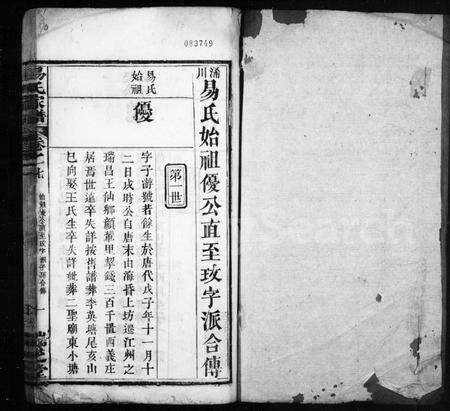 083749
湧川
易氏始祖優公直至玫字派合傳
第一世
易氏
始祖
優
字子游號若餘生於唐代戊子年十一月十
二日戌時公自唐末由海昏上坊遷江州之
瑞昌王仙鄉顏董里挈錢三百千置西義庄
居焉世遠卒失詳按舊譜葬李英塘尾亥山
巳向娶王氏生卒失詳妣葬二聖廟東小塘
易氏宗譜
卷之
一